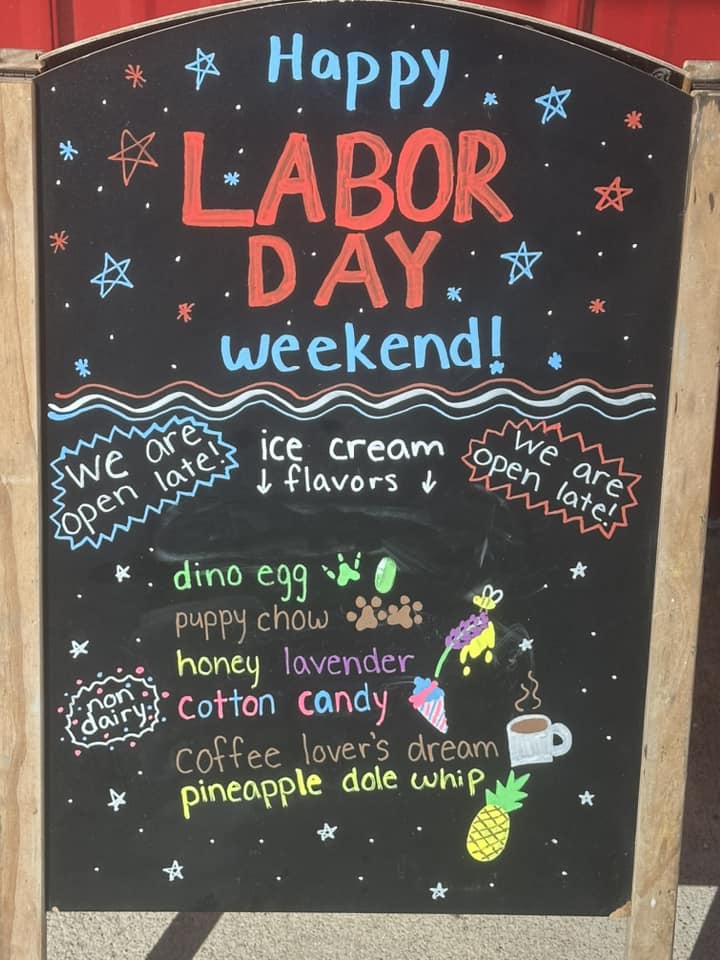 Happy
LABOR
DAY
weekend!
We are
open late!
ice cream
↓ flavors ↓
We are
open late!
dino egg
puppy chow
honey lavender
non
dairy:
cotton candy
coffee lover's dream
pineapple dole whip